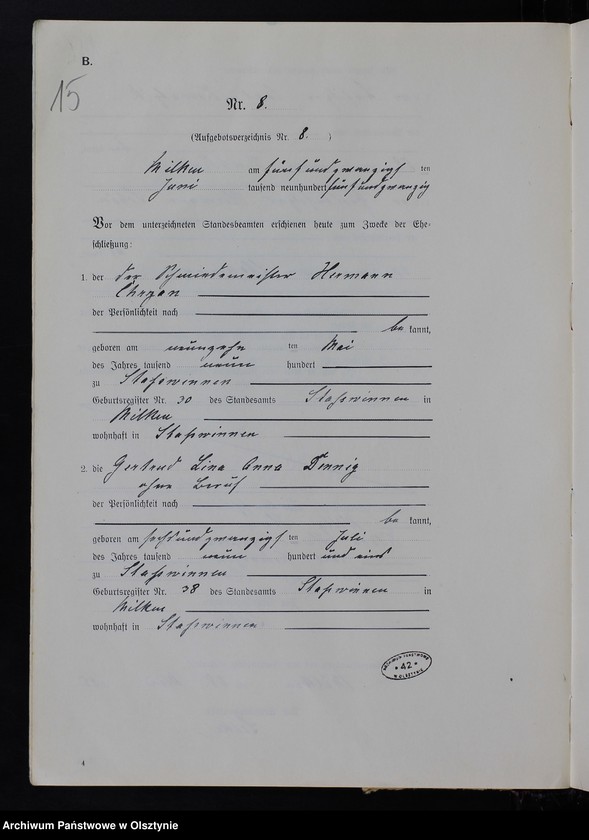 B.
15
Nr. 8.
(Aufgebotsverzeichnis Nr. 8. )
Milken am fünfundzwanzigsten
Juni tausend neunhundert fünfundzwanzig
Vor dem unterzeichneten Standesbeamten erschienen heute zum Zwecke der Ehe-
schließung:
1. der der Schmiedemeister Hermann
der Persönlichkeit nach
be kannt,
geboren am neunzehn ten Mai
des Jahres tausend neun hundert
zu Staßwinnen
Geburtsregister Nr. 30 des Standesamts Staßwinnen in
Milken
wohnhaft in Staßwinnen
2. die Gertrud Lina Anna Dennig
ohne Beruf
der Persönlichkeit nach
be kannt,
geboren am sechsundzwanzigsten Juli
des Jahres tausend neun hundert und eins
zu Staßwinnen
Geburtsregister Nr. 38 des Standesamts Staßwinnen in
Milken
wohnhaft in Staßwinnen
ARCHIWUM PAŃSTWOWE
* 42 *
W OLSZTYNIE
4
Archiwum Państwowe w Olsztynie